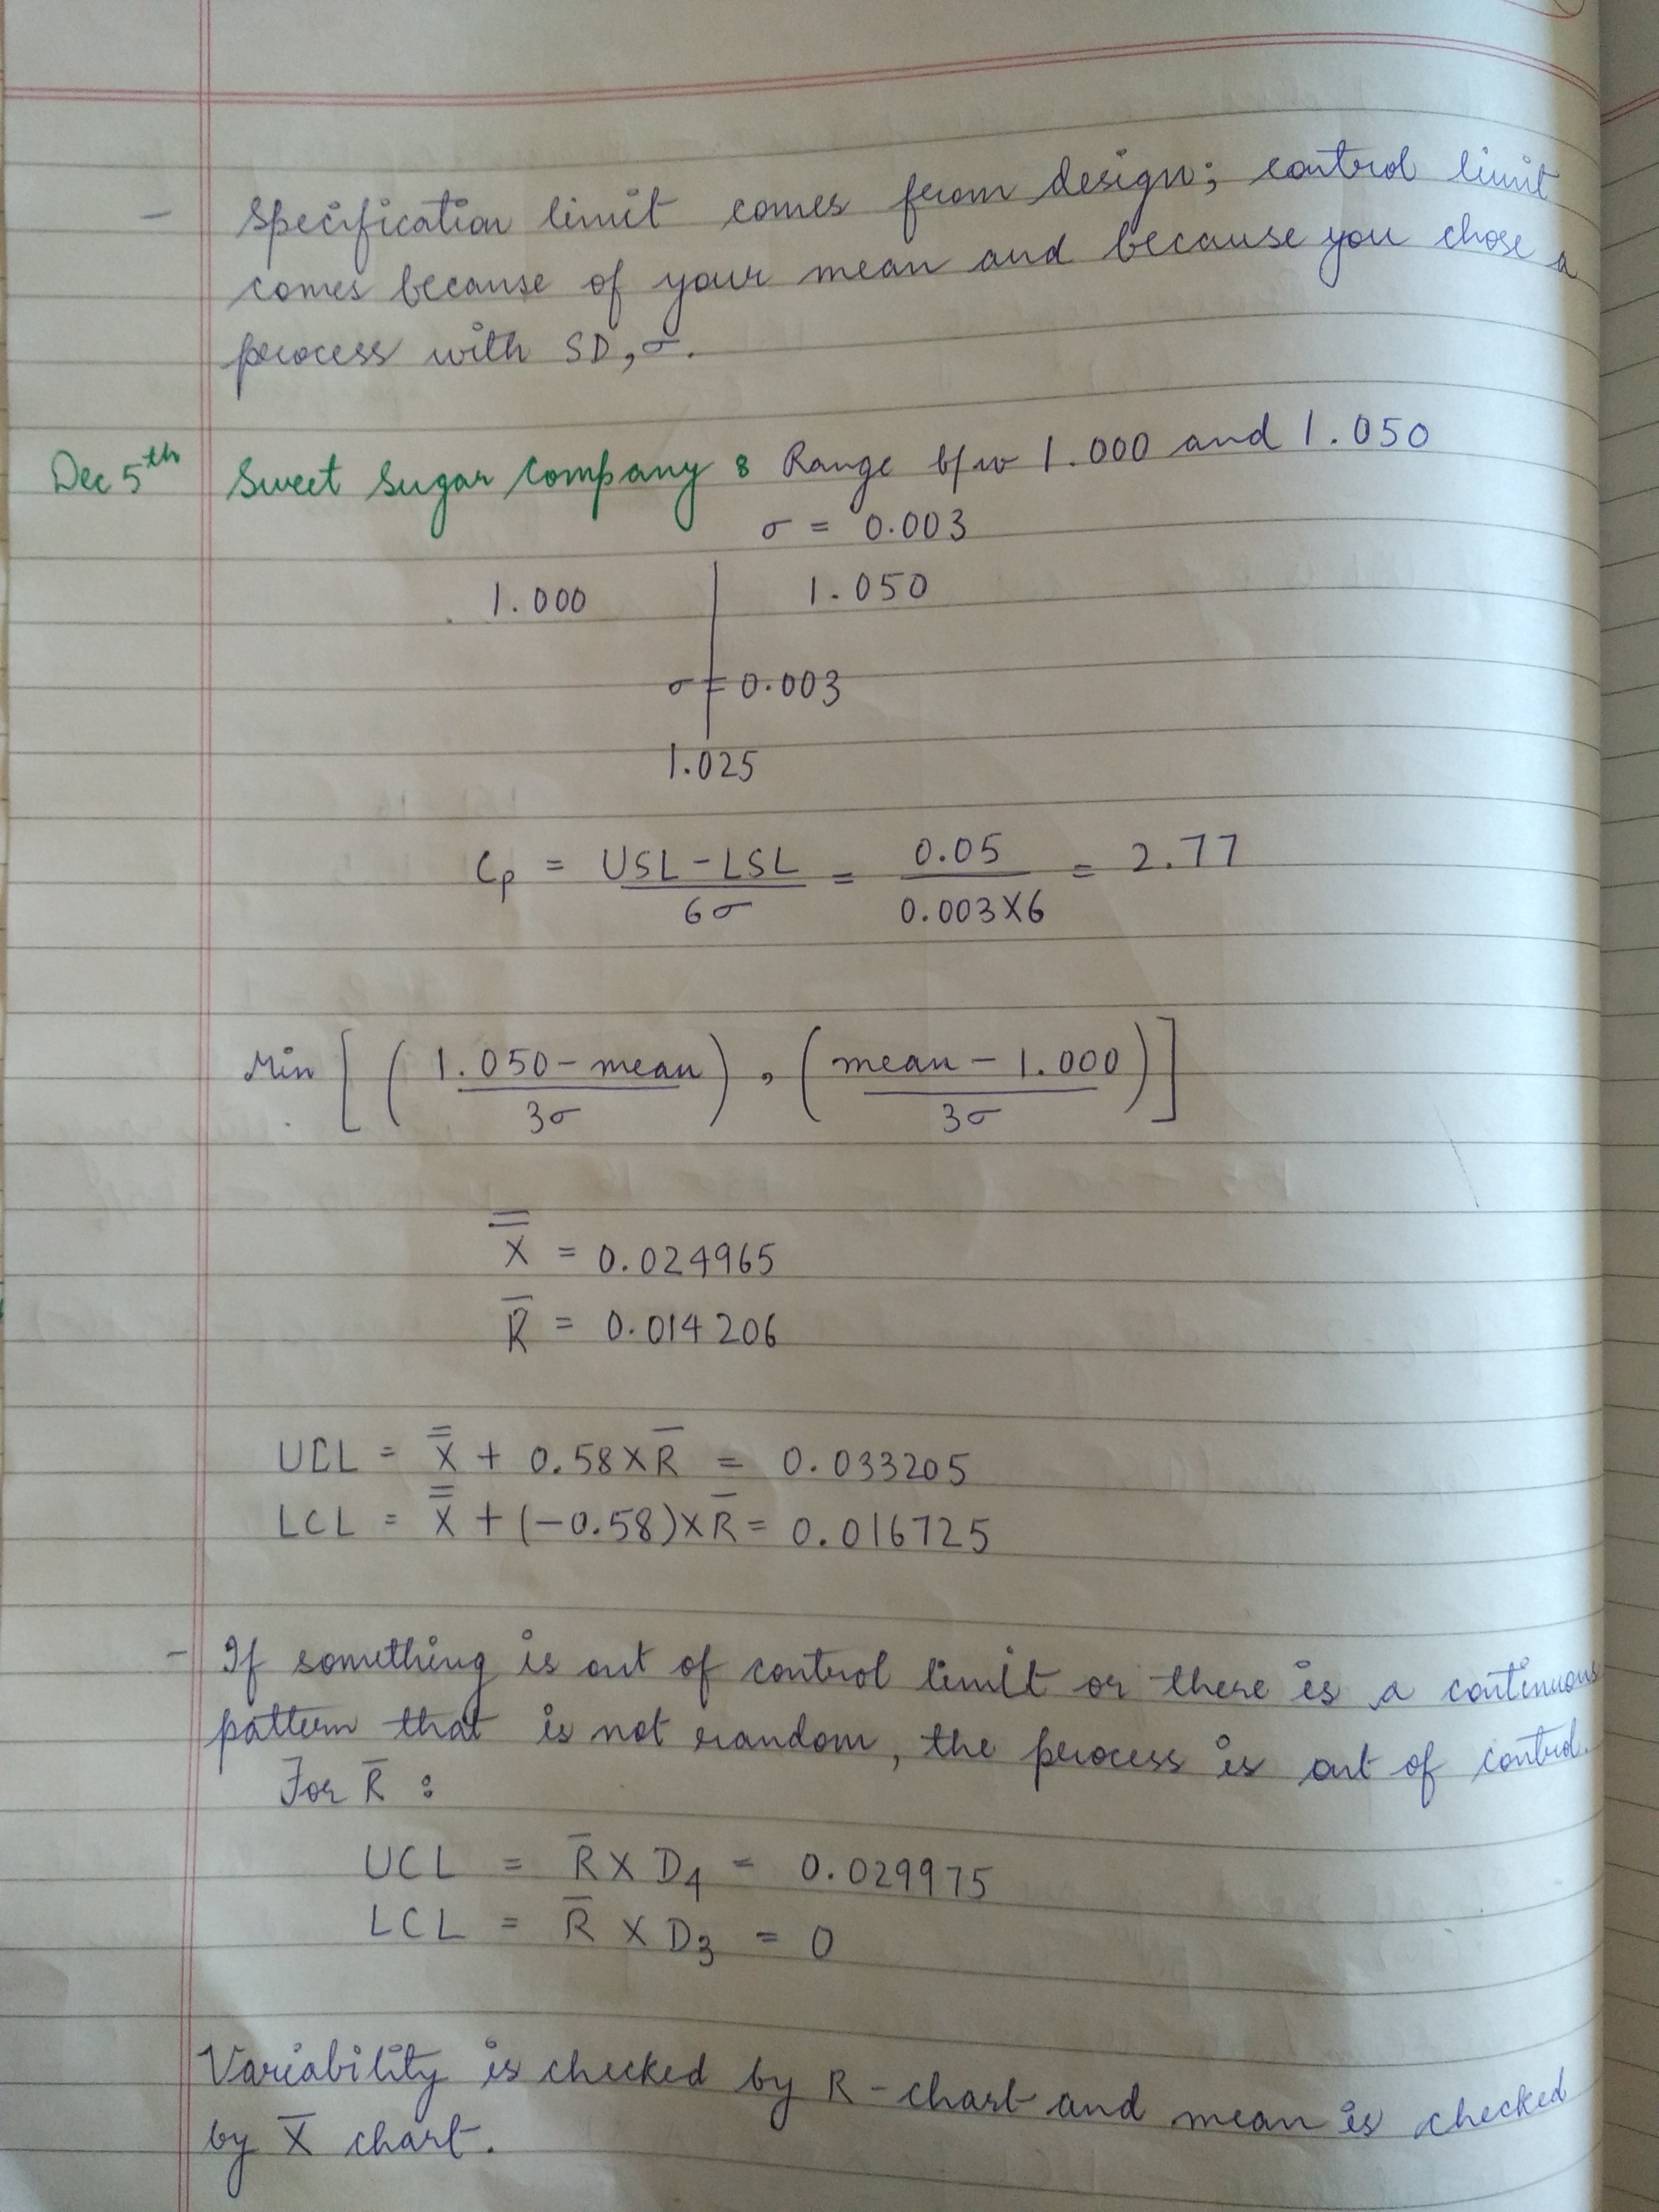 - Specification limit comes from design; control limit
comes because of your mean and because you chose a
process with SD, σ.
Dec 5th Sweet Sugar Company : Range b/w 1.000 and 1.050
σ = 0.003
1.000 1.050
σ = 0.003
1.025
Cp = USL - LSL / 6σ = 0.05 / 0.003 X 6 = 2.77
Min [ ( 1.050 - mean / 3σ ) , ( mean - 1.000 / 3σ ) ]
X̿ = 0.024965
R̄ = 0.014206
UCL = X̿ + 0.58 X R̄ = 0.033205
LCL = X̿ + (-0.58) X R̄ = 0.016725
- If something is out of control limit or there is a continuous
pattern that is not random, the process is out of control.
For R̄ :
UCL = R̄ X D4 = 0.029975
LCL = R̄ X D3 = 0
Variability is checked by R - chart and mean is checked
by X̄ chart.